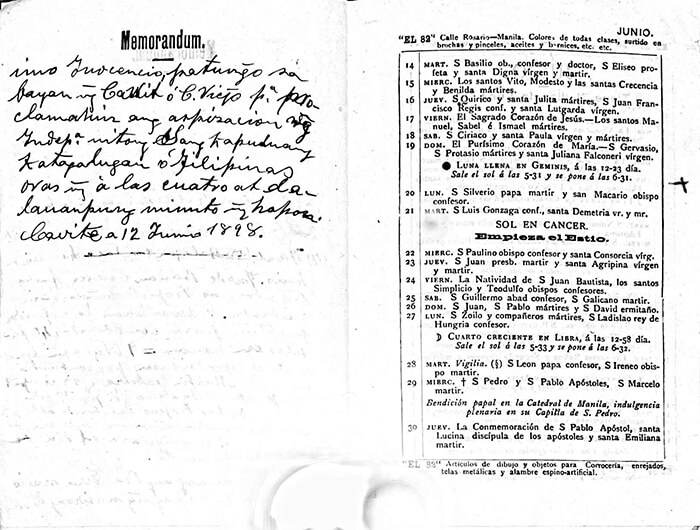 Memorandum.
imo Inocencio, patungo sa
bayan ng Cauit ó C. Viejo pª pro
clamahin ang aspiracion ng
Indepª nitong Sang Kapuluang
Katagalugan o Filipinas
oras ng á las cuatro at da-
lauanpung minuto ng hapon.
Cavite a 12 Junio 1898.
JUNIO.
"EL 82" Calle Rosario—Manila. Colores de todas clases, surtido en
brochas y pinceles, aceites y barnices, etc. etc.
14 MART. S Basilio ob., confesor y doctor, S Eliseo pro-
feta y santa Digna vírgen y martir.
15 MIERC. Santos Vito, Modesto y las santas Crecencia
y Benilda mártires.
16 JUEV. S Quirico y santa Julita mártires, S Juan Fran-
cisco Regis conf. y santa Lutgarda vírgen.
17 VIERN. El Sagrado Corazón de Jesús.—Los santos Ma-
nuel, Sabel é Ismael mártires.
18 SAB. S Ciríaco y santa Paula vírgen y mártires.
19 DOM. El Purísimo Corazón de María.—S Gervasio,
S Protasio mártires y santa Juliana Falconeri vírgen.
LUNA LLENA EN GEMINIS, á las 12-23 día.
Sale el sol á las 5-31 y se pone á las 6-31.
20 LUN. S Silverio papa martir y san Macario obispo
confesor.
21 MART. S Luis Gonzaga conf., santa Demetria vr. y mr.
SOL EN CANCER.
Empieza el Estío.
22 MIERC. S Paulino obispo confesor y santa Consorcia vírg.
23 JUEV. S Juan presb. martir y santa Agripina vírgen
y martir.
24 VIERN. La Natividad de S Juan Bautista, los santos
Simplicio y Teodulfo obispos confesores.
25 SAB. S Guillermo abad confesor, S Galicano martir.
26 DOM. S Juan, S Pablo mártires y S David ermitaño.
27 LUN. S Zoilo y compañeros mártires, S Ladislao rey de
Hungria confesor.
CUARTO CRECIENTE EN LIBRA, á las 12-58 día.
Sale el sol á las 5-33 y se pone á las 6-32.
28 MART. Vigilia. (§) S Leon papa confesor, S Ireneo obis-
po martir.
29 MIERC. † S Pedro y S Pablo Apóstoles, S Marcelo
martir.
Bendición papal en la Catedral de Manila, indulgencia
plenaria en su Capilla de S. Pedro.
30 JUEV. La Conmemoración de S Pablo Apóstol, santa
Lucina discípula de los apóstoles y santa Emiliana
martir.
"EL 82" Artículos de dibujo y objetos para Corrocería, enrejados,
telas metálicas y alambre espino-artificial.